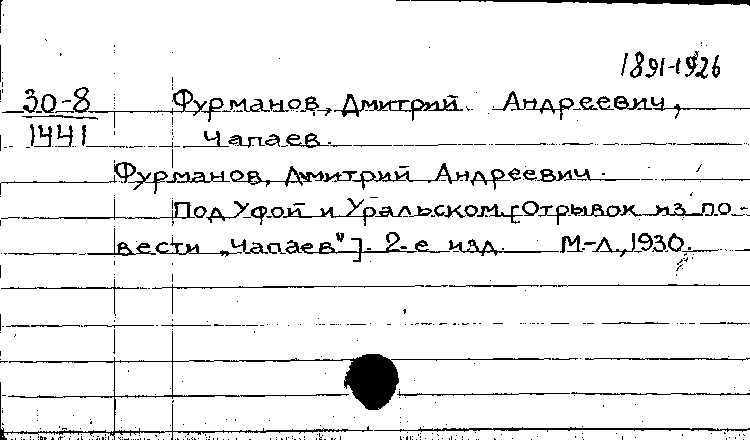 1891-1926
30-8 Фурманов, Дмитрий Андреевич,
1441 Чапаев.
Фурманов, Дмитрий Андреевич.
Под Уфой и Уральском. [Отрывок из по-
вести „Чапаев"]. 2-е изд. М-Л., 1930.